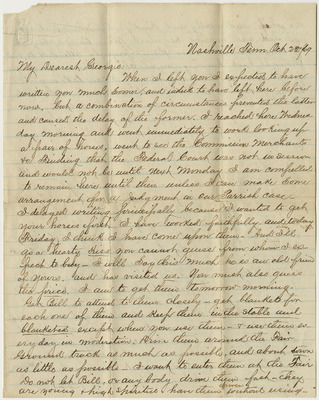 Nashville Tenn Oct 22/69
My Dearest Georgie.
When I left you I expected to have
written you much sooner, and indeed to have left here before
now, but a combination of circumstances prevented the latter
and caused the delay of the former. I reached here Wednes
day morning and went immediately to work looking up
a pair of horses, went to see the Commission Merchants
&c finding that the Federal Court was not in session
and would not be until next Monday I am compelled
to remain here until then unless I can make some
arrangement for a judgment in our Parrish case
I delayed writing principally because I wanted to get
your horses first. I have worked faithfully and today
Friday I think I have come upon them. And I'll
go a hearty kiss you cannot guess from whom I ex
pect to buy. I will say this much he is an old friend
of yours, and has visited us. You must also guess
the price. I am to get them tomorrow morning.
Get Bill to attend to them closely - get blankets for
each one of them and keep them in the stable and
blanketed except when you use them - & use them ev
ery day in moderation. Run them around the Fair
Ground track as much as possible, and about town
as little as possible. I want to enter them at the Fair
Do not let Bill, or any body, drive them fast - they
are young & high spirited